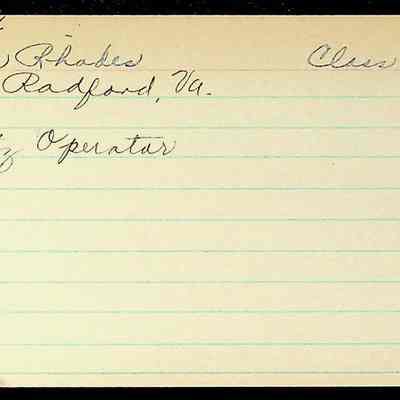 Rhodes Class
Radford, Va.
Operator